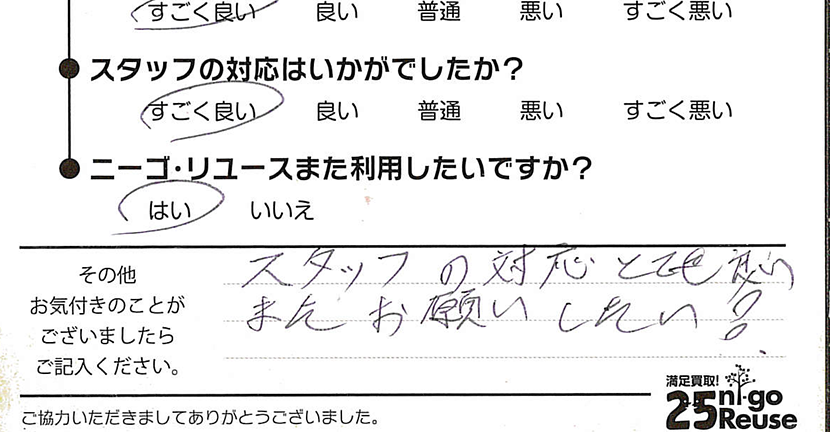 すごく良い 良い 普通 悪い すごく悪い
スタッフの対応はいかがでしたか？
すごく良い 良い 普通 悪い すごく悪い
ニーゴ・リユースまた利用したいですか？
はい いいえ
その他
お気付きのことが
ございましたら
ご記入ください。
スタッフの対応とても
またお願いしたい
ご協力いただきましてありがとうございました。
満足買取!
25 ni-go
Reuse